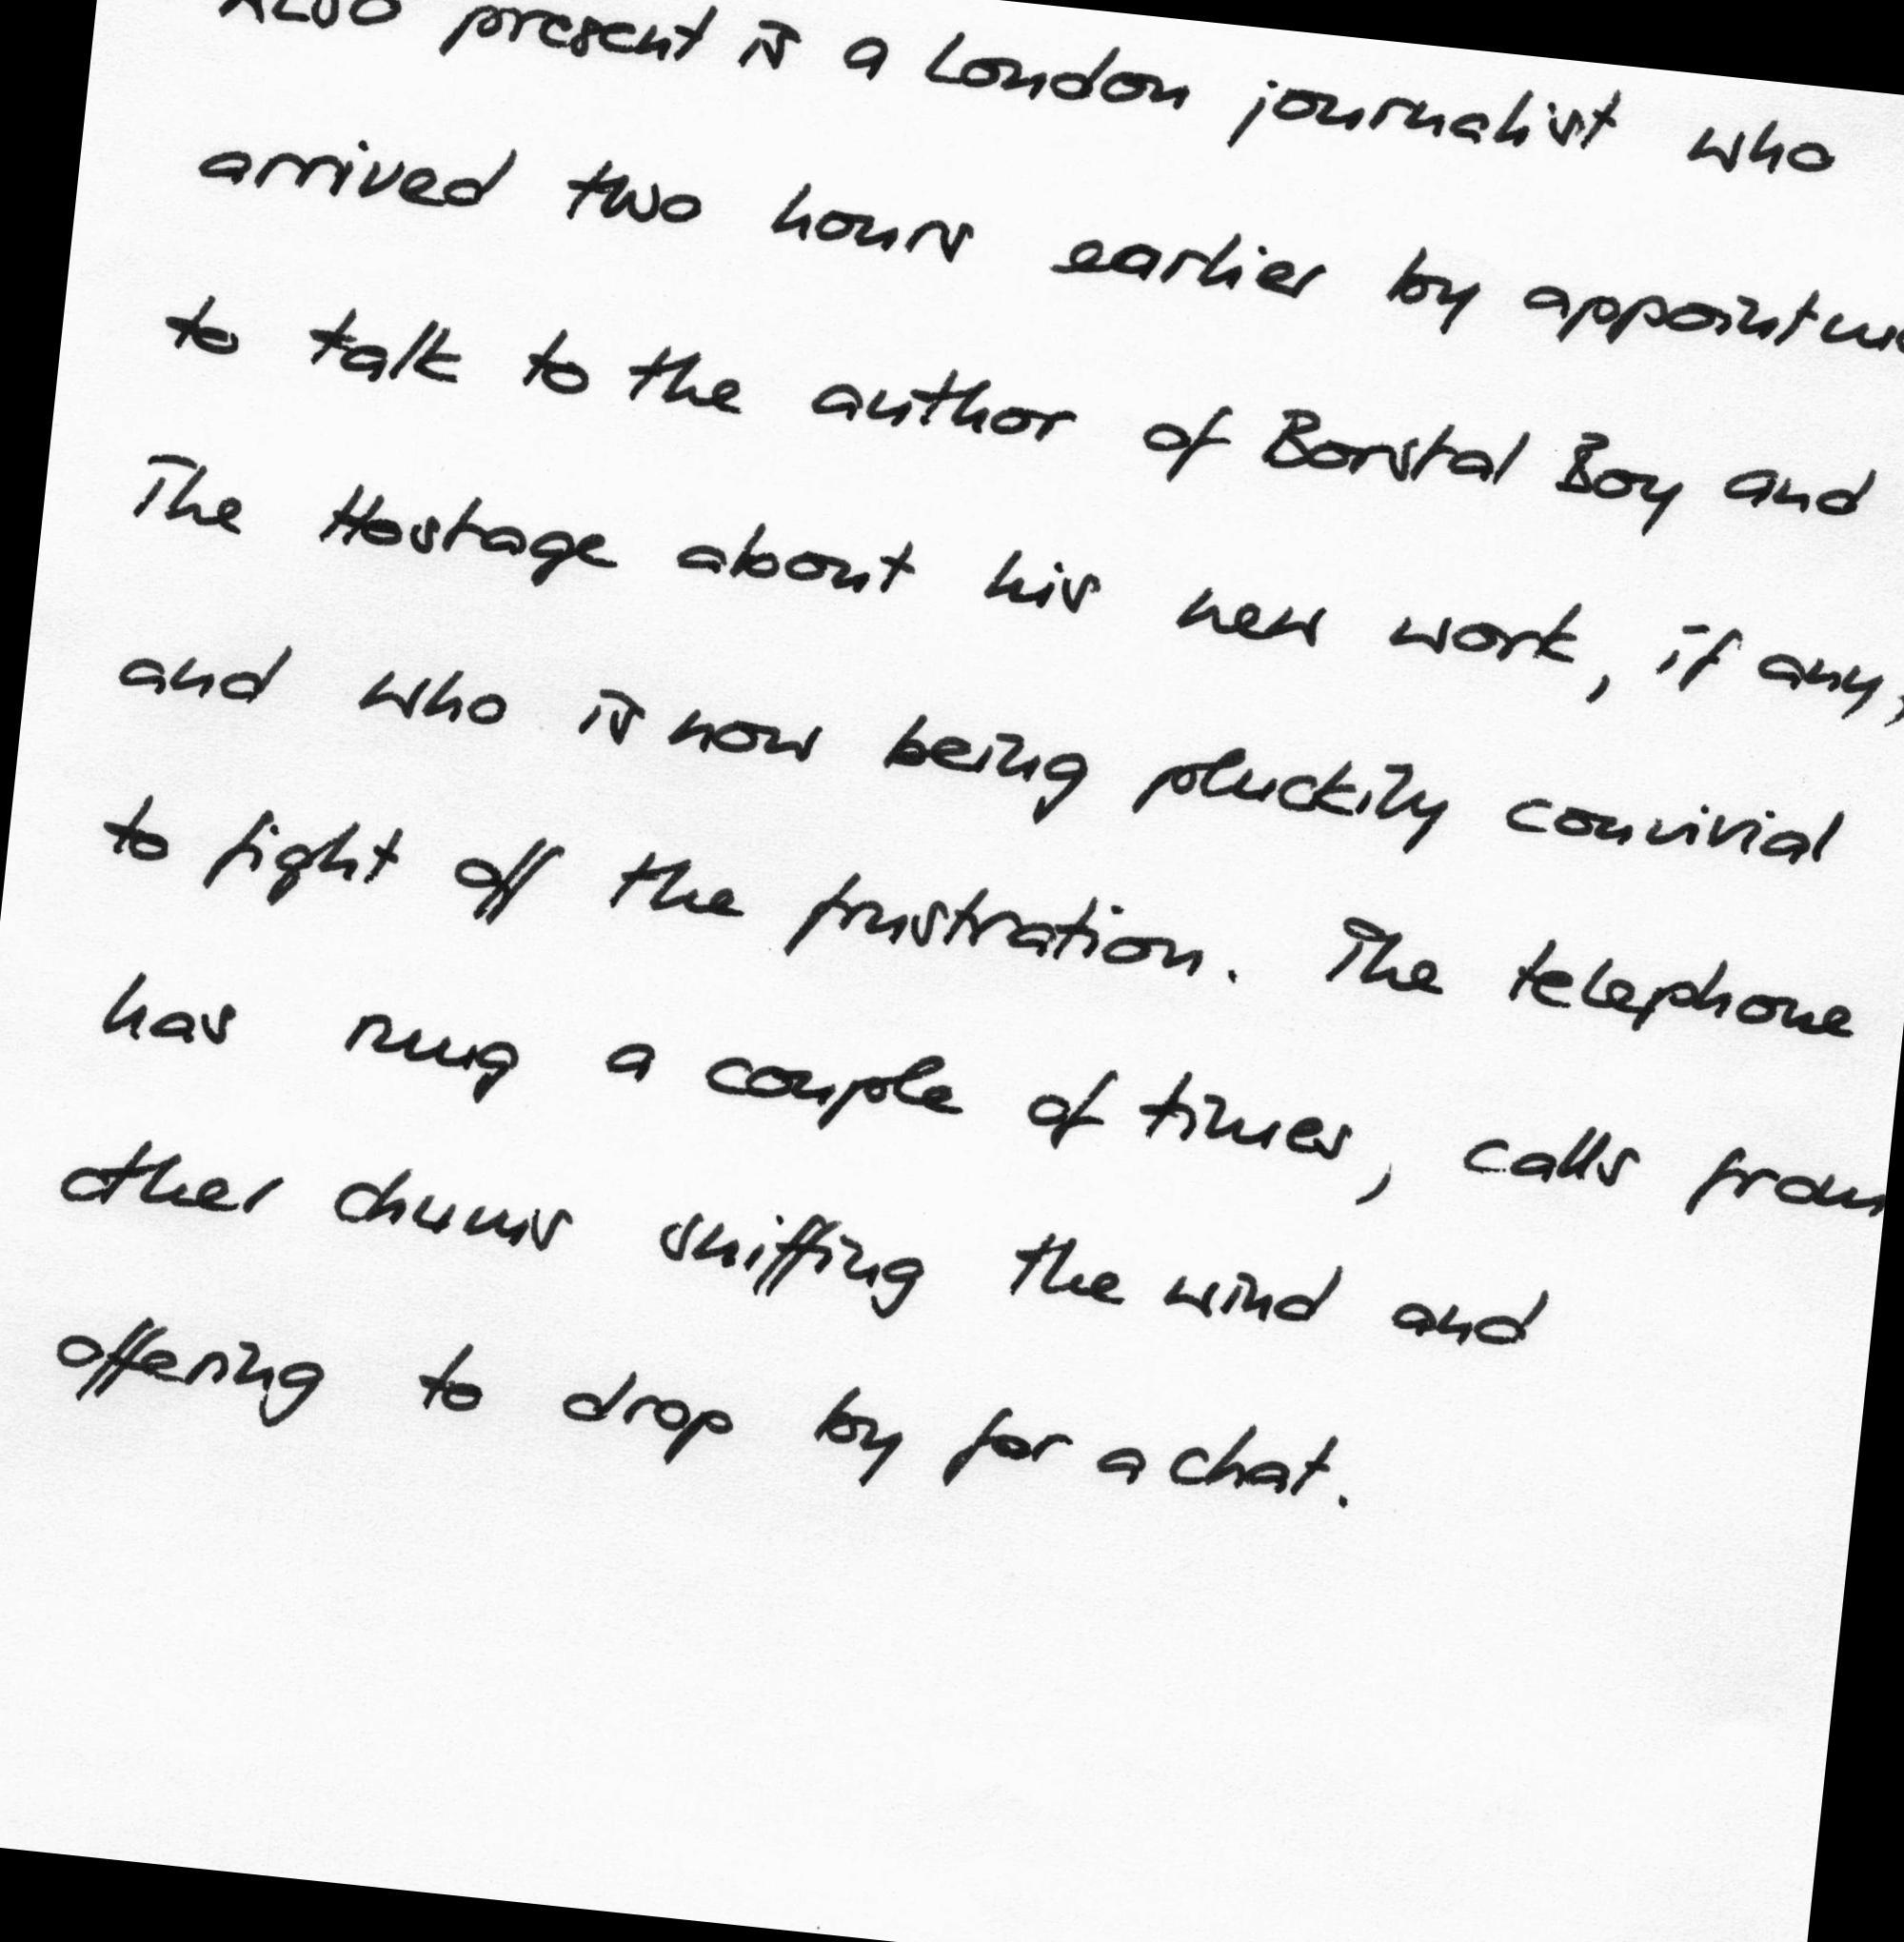 Also present is a London journalist who
arrived two hours earlier by
to talk to the author of Borstal Boy and
The Hostage about his new work, if any,
and who is now being pluckily convivial
to fight off the frustration. The telephone
has rung a couple of times, calls from
other chums sniffing the wind and
offering to drop by for a chat.